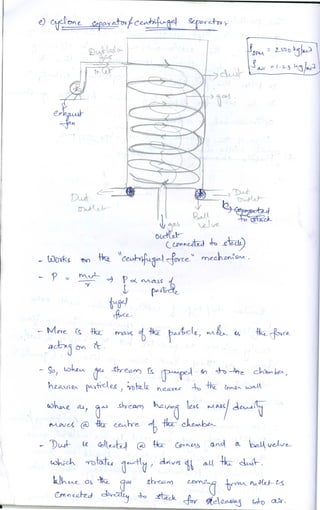 e) Cyclone separator/centrifugal separator,
ρ = 2500 kg/m3
ρ = 1.29 kg/m3
gas
inlet
dust
gas
exhaust
fan
Dust
outlet
gas
outlet
(connected to stack)
Ball
valve
Dust
outlet
to stack
- Works on the "centrifugal force" mechanism.
- P = mv2/r → P ∝ mass of particle
force
- More is the mass of the particle, more is the force
acting on it.
- So, when gas stream is pumped in to the chamber,
heavier particles, rotate nearer to the inner wall
where as, gas stream having less mass/density
moves @ the centre of the chamber.
- Dust is collected @ the corners and a ball valve
which rotates gently, drives off all the dust.
Where as the gas stream coming from outlet is
connected directly to stack for releasing into air.